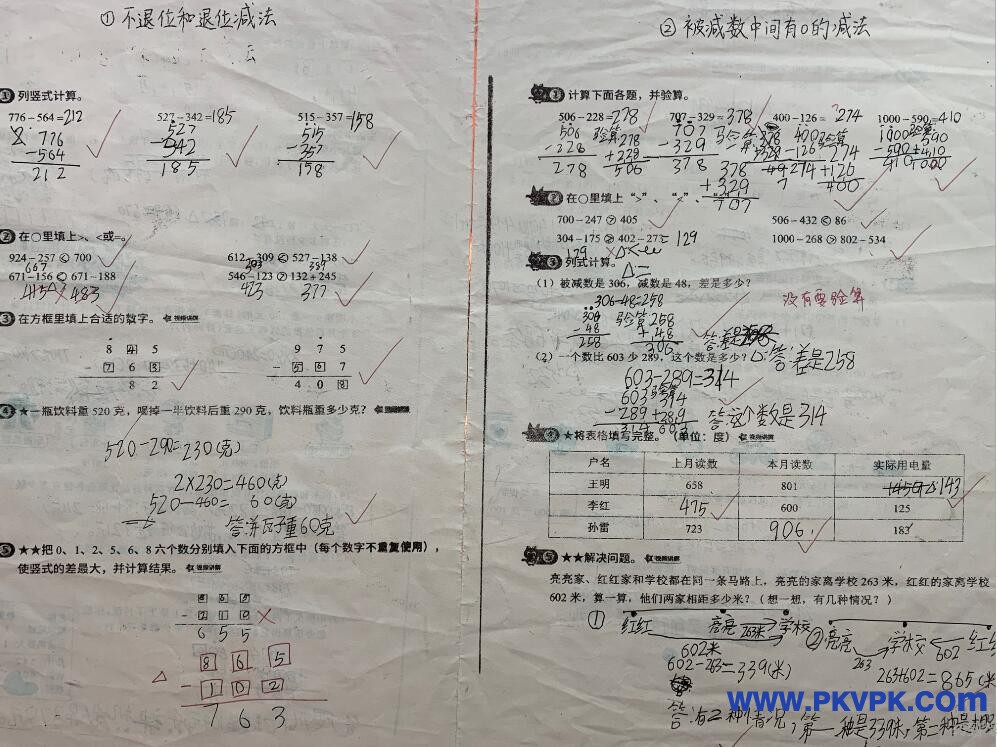 ① 不退位和退位减法
① 列竖式计算。
776－564＝212 527－342＝185 515－357＝158
776 527 515
－564 －342 －357
212 185 158
② 在○里填上>、<或=。
924－257 < 700 612－309 < 527－138
667 303 389
671－156 < 671－188 546－123 > 132＋245
483 423 377
③ 在方框里填上合适的数字。
8 4 5 9 7 5
－7 6 3 －5 6 7
8 2 4 0 8
④ ★一瓶饮料重 520 克，喝掉一半饮料后重 290 克，饮料瓶重多少克？
520－290＝230(克)
2×230＝460(克)
520－460＝60(克)
⑤ ★★把 0、1、2、5、6、8 六个数分别填入下面的方框中（每个数字不重复使用），
使竖式的差最大，并计算结果。
8 6 5
－2 1 0
6 5 5
8 6 5
－1 0 2
7 6 3
② 被减数中间有0的减法
① 计算下面各题，并验算。
506－228＝278 707－329＝378 400－126＝274 1000－590＝410
② 在○里填上“>”、“<”、“=”
700－247 > 405 506－432 < 86
304－175 ≥ 402－273＝129 1000－268 > 802－534
129
③ 列式计算。
（1）被减数是 306，减数是 48，差是多少？
306－48＝258
没有要验算
306 验算:258
－48 ＋48
258 306
（2）一个数比 603 少 289，这个数是多少？ 答:差是258
603－289＝314
603 验算 314
－289 ＋289
314 603
答:这个数是314
④ ★将表格填写完整。（单位：度）
户名 上月读数 本月读数 实际用电量
王明 658 801 143
李红 475 600 125
孙雷 723 906 183
⑤ ★★解决问题。
亮亮家、红红家和学校都在同一条马路上，亮亮的家离学校 263 米，红红的家离学校
602 米，算一算，他们两家相距多少米？（想一想，有几种情况？）
① 红红 亮亮 263米 学校 ② 亮亮 学校 红红
602米 263 602
602－263＝339(米) 263＋602＝865(米
答:有2种情况,第一种是339米,第二种是
www.PKVPK.com